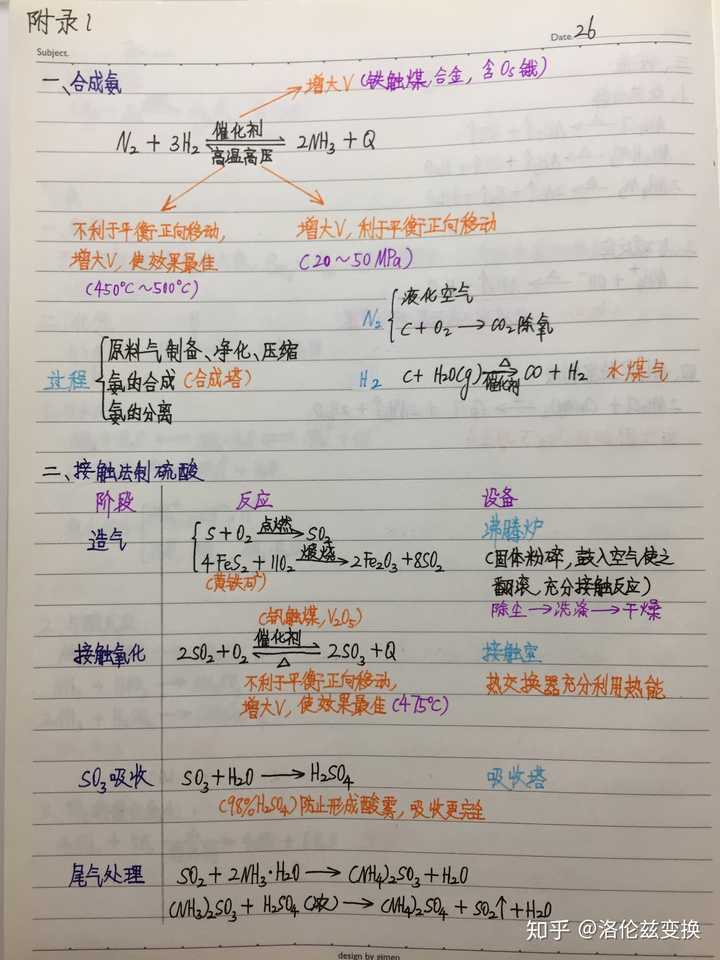 附录1
Subject.
Date. 26
一、合成氨
增大V (铁触媒,合金,含Os锇)
N₂ + 3H₂ 催化剂⇌高温高压 2NH₃ + Q
不利于平衡正向移动,
增大V, 使效果最佳
(450℃~500℃)
增大V, 利于平衡正向移动
(20~50MPa)
N₂ { 液化空气
C + O₂ → CO₂ 除氧
过程 { 原料气制备、净化、压缩
氨的合成 (合成塔)
氨的分离
H₂ C + H₂O(g) △→催化剂 CO + H₂ 水煤气
二、接触法制硫酸
阶段 反应 设备
造气 { S + O₂ 点燃→ SO₂
4FeS₂ + 11O₂ 煅烧→ 2Fe₂O₃ + 8SO₂
(黄铁矿)
沸腾炉
(固体粉碎,鼓入空气使之
翻滚,充分接触反应)
除尘→洗涤→干燥
(钒触媒,V₂O₅)
接触氧化 2SO₂ + O₂ 催化剂⇌△ 2SO₃ + Q 接触室
不利于平衡正向移动,
增大V, 使效果最佳 (475℃)
热交换器充分利用热能
SO₃吸收 SO₃ + H₂O → H₂SO₄ 吸收塔
(98%H₂SO₄) 防止形成酸雾,吸收更完全
尾气处理 SO₂ + 2NH₃·H₂O → (NH₄)₂SO₃ + H₂O
(NH₃)₂SO₃ + H₂SO₄(浓) → (NH₄)₂SO₄ + SO₂↑ + H₂O
知乎 @洛伦兹变换
design by gimen